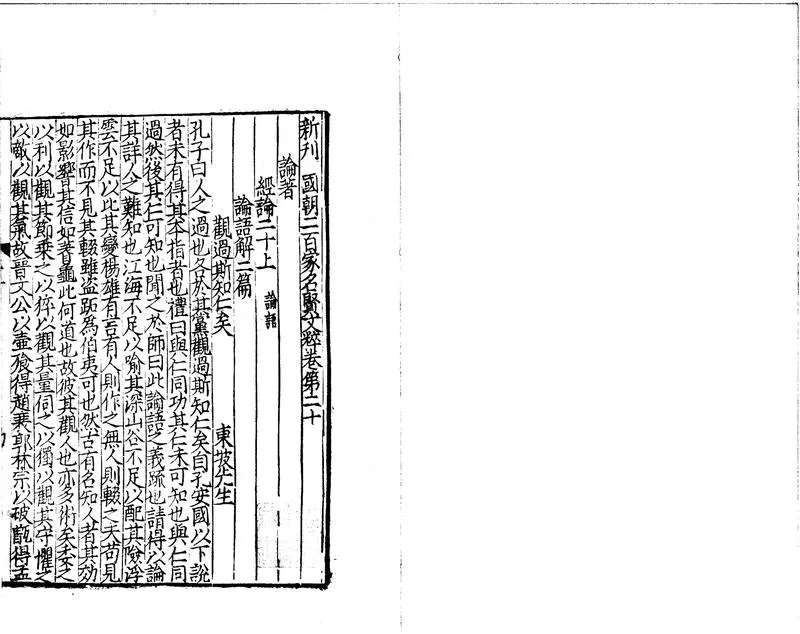 新刊國朝二百家名賢文粹卷第二十
論著
經論二十上 論語
論語解二篇
觀過斯知仁矣 東坡先生
孔子曰人之過也各於其黨觀過斯知仁矣自孔安國以下說
者未有得其本指者也禮曰與仁同功其仁未可知也與仁同
過然後其仁可知也聞之於師曰此論語之義䟽也請得以論
其詳人之難知也江海不足以喻其深山谷不足以配其險浮
雲不足以比其變楊雄有言有人則作之無人則輟之夫苟見
其作而不見其輟雖盗跖爲伯夷可也然古有名知人者其効
如影響其信如蓍龜此何道也故彼其觀人也亦多術矣委之
以利以觀其節乗之以猝以觀其量伺之以獨以觀其守懼之
以敵以觀其氣故晉文公以壷飱得趙衰郭林宗以破甑得孟